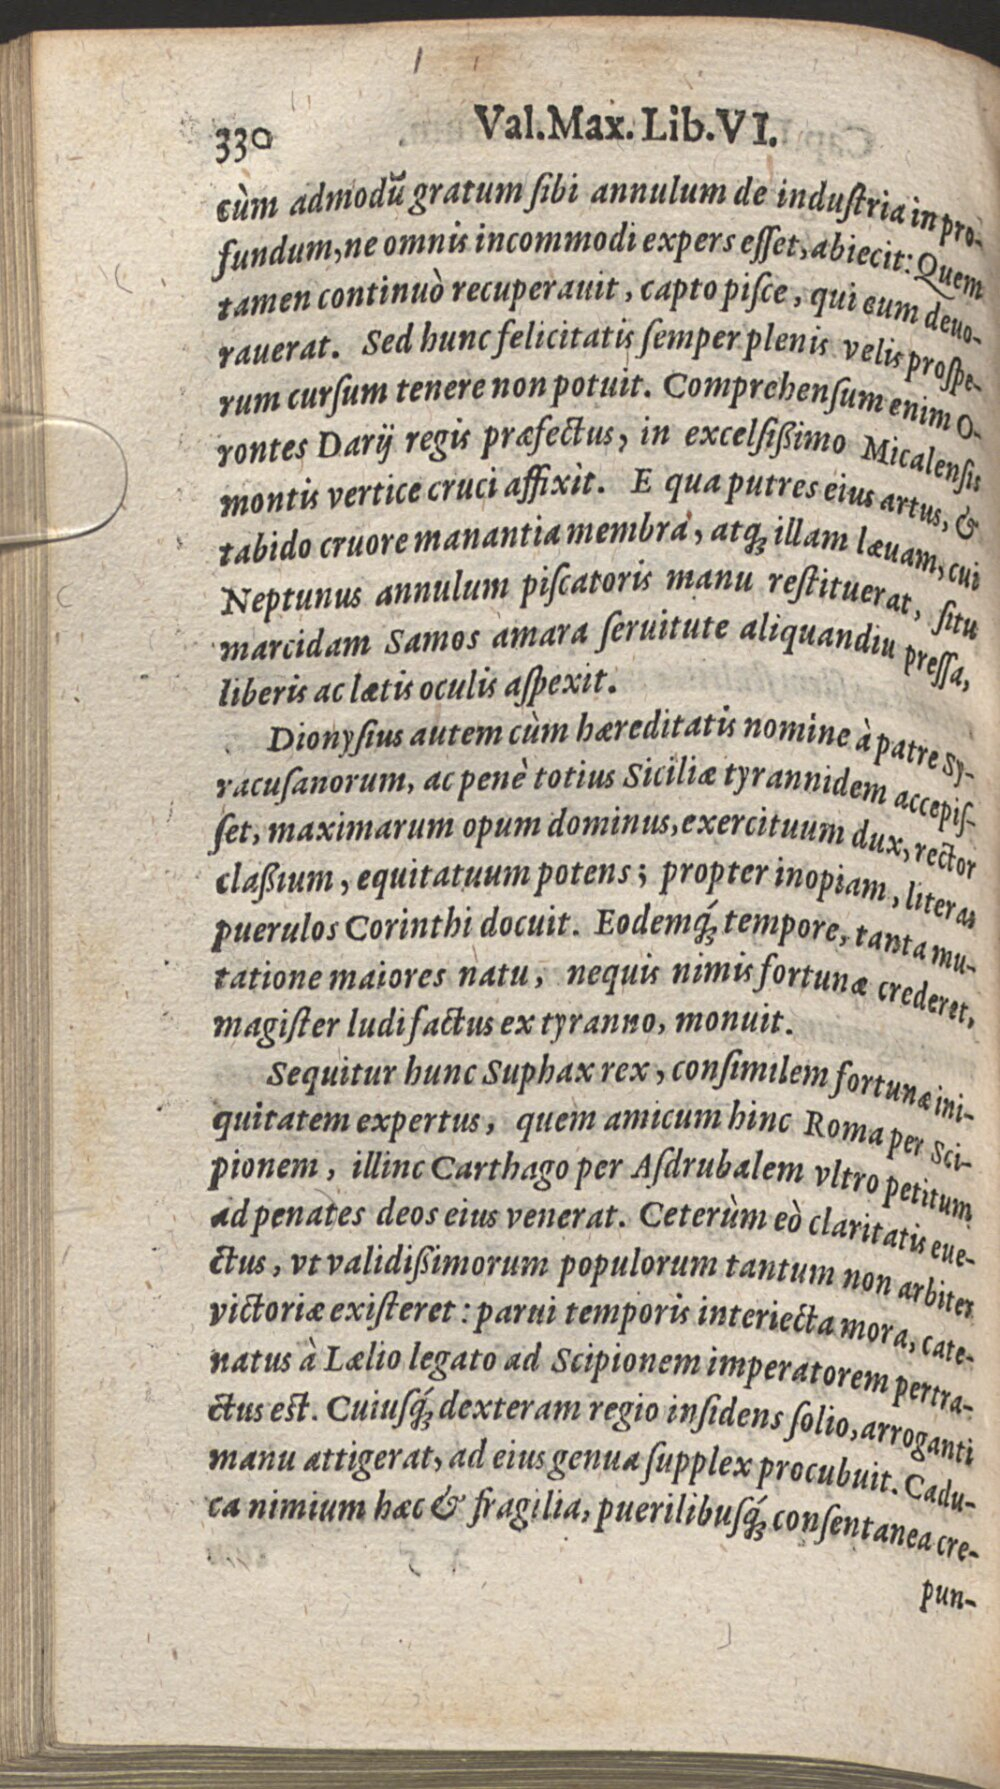 330 Val. Max. Lib. VI.
cùm admodũ gratum ſibi annulum de induſtria in pro-
fundum, ne omnis incommodi expers eſſet, abiecit: Quem
tamen continuò recuperauit, capto piſce, qui eum deuo-
rauerat. Sed hunc felicitatis ſemper plenis velis proſpe-
rum curſum tenere non potuit. Comprehenſum enim O-
rontes Darij regis præfectus, in excelſißimo Micalenſis
montis vertice cruci affixìt. E qua putres eius artus, &
tabido cruore manantia membra, atqꝫ illam læuam, cui
Neptunus annulum piſcatoris manu reſtituerat, ſitu
marcidam Samos amara ſeruitute aliquandiu preſſa,
liberis ac lætis oculis aſpexit.
Dionyſius autem cùm hæreditatis nomine à patre Sy-
racuſanorum, ac penè totius Siciliæ tyrannidem accepiſ-
ſet, maximarum opum dominus, exercituum dux, rector
claßium, equitatuum potens; propter inopiam, literas
puerulos Corinthi docuit. Eodemq́ꝫ tempore, tanta mu-
tatione maiores natu, nequis nimis fortunæ crederet,
magiſter ludi factus ex tyranno, monuit.
Sequitur hunc Suphax rex, conſimilem fortunæ ini-
quitatem expertus, quem amicum hinc Roma per Sci-
pionem, illinc Carthago per Aſdrubalem vltro petitum
ad penates deos eius venerat. Ceterùm eò claritatis eue-
ctus, vt validißimorum populorum tantum non arbiter
victoriæ exiſteret: parui temporis interiecta mora, cate-
natus à Lælio legato ad Scipionem imperatorem pertra-
ctus eſt. Cuiuſq́ꝫ dexteram regio inſidens ſolio, arroganti
manu attigerat, ad eius genua ſupplex procubuit. Cadu-
ca nimium hæc & fragilia, puerilibuſq́ꝫ conſentanea cre-
pun-